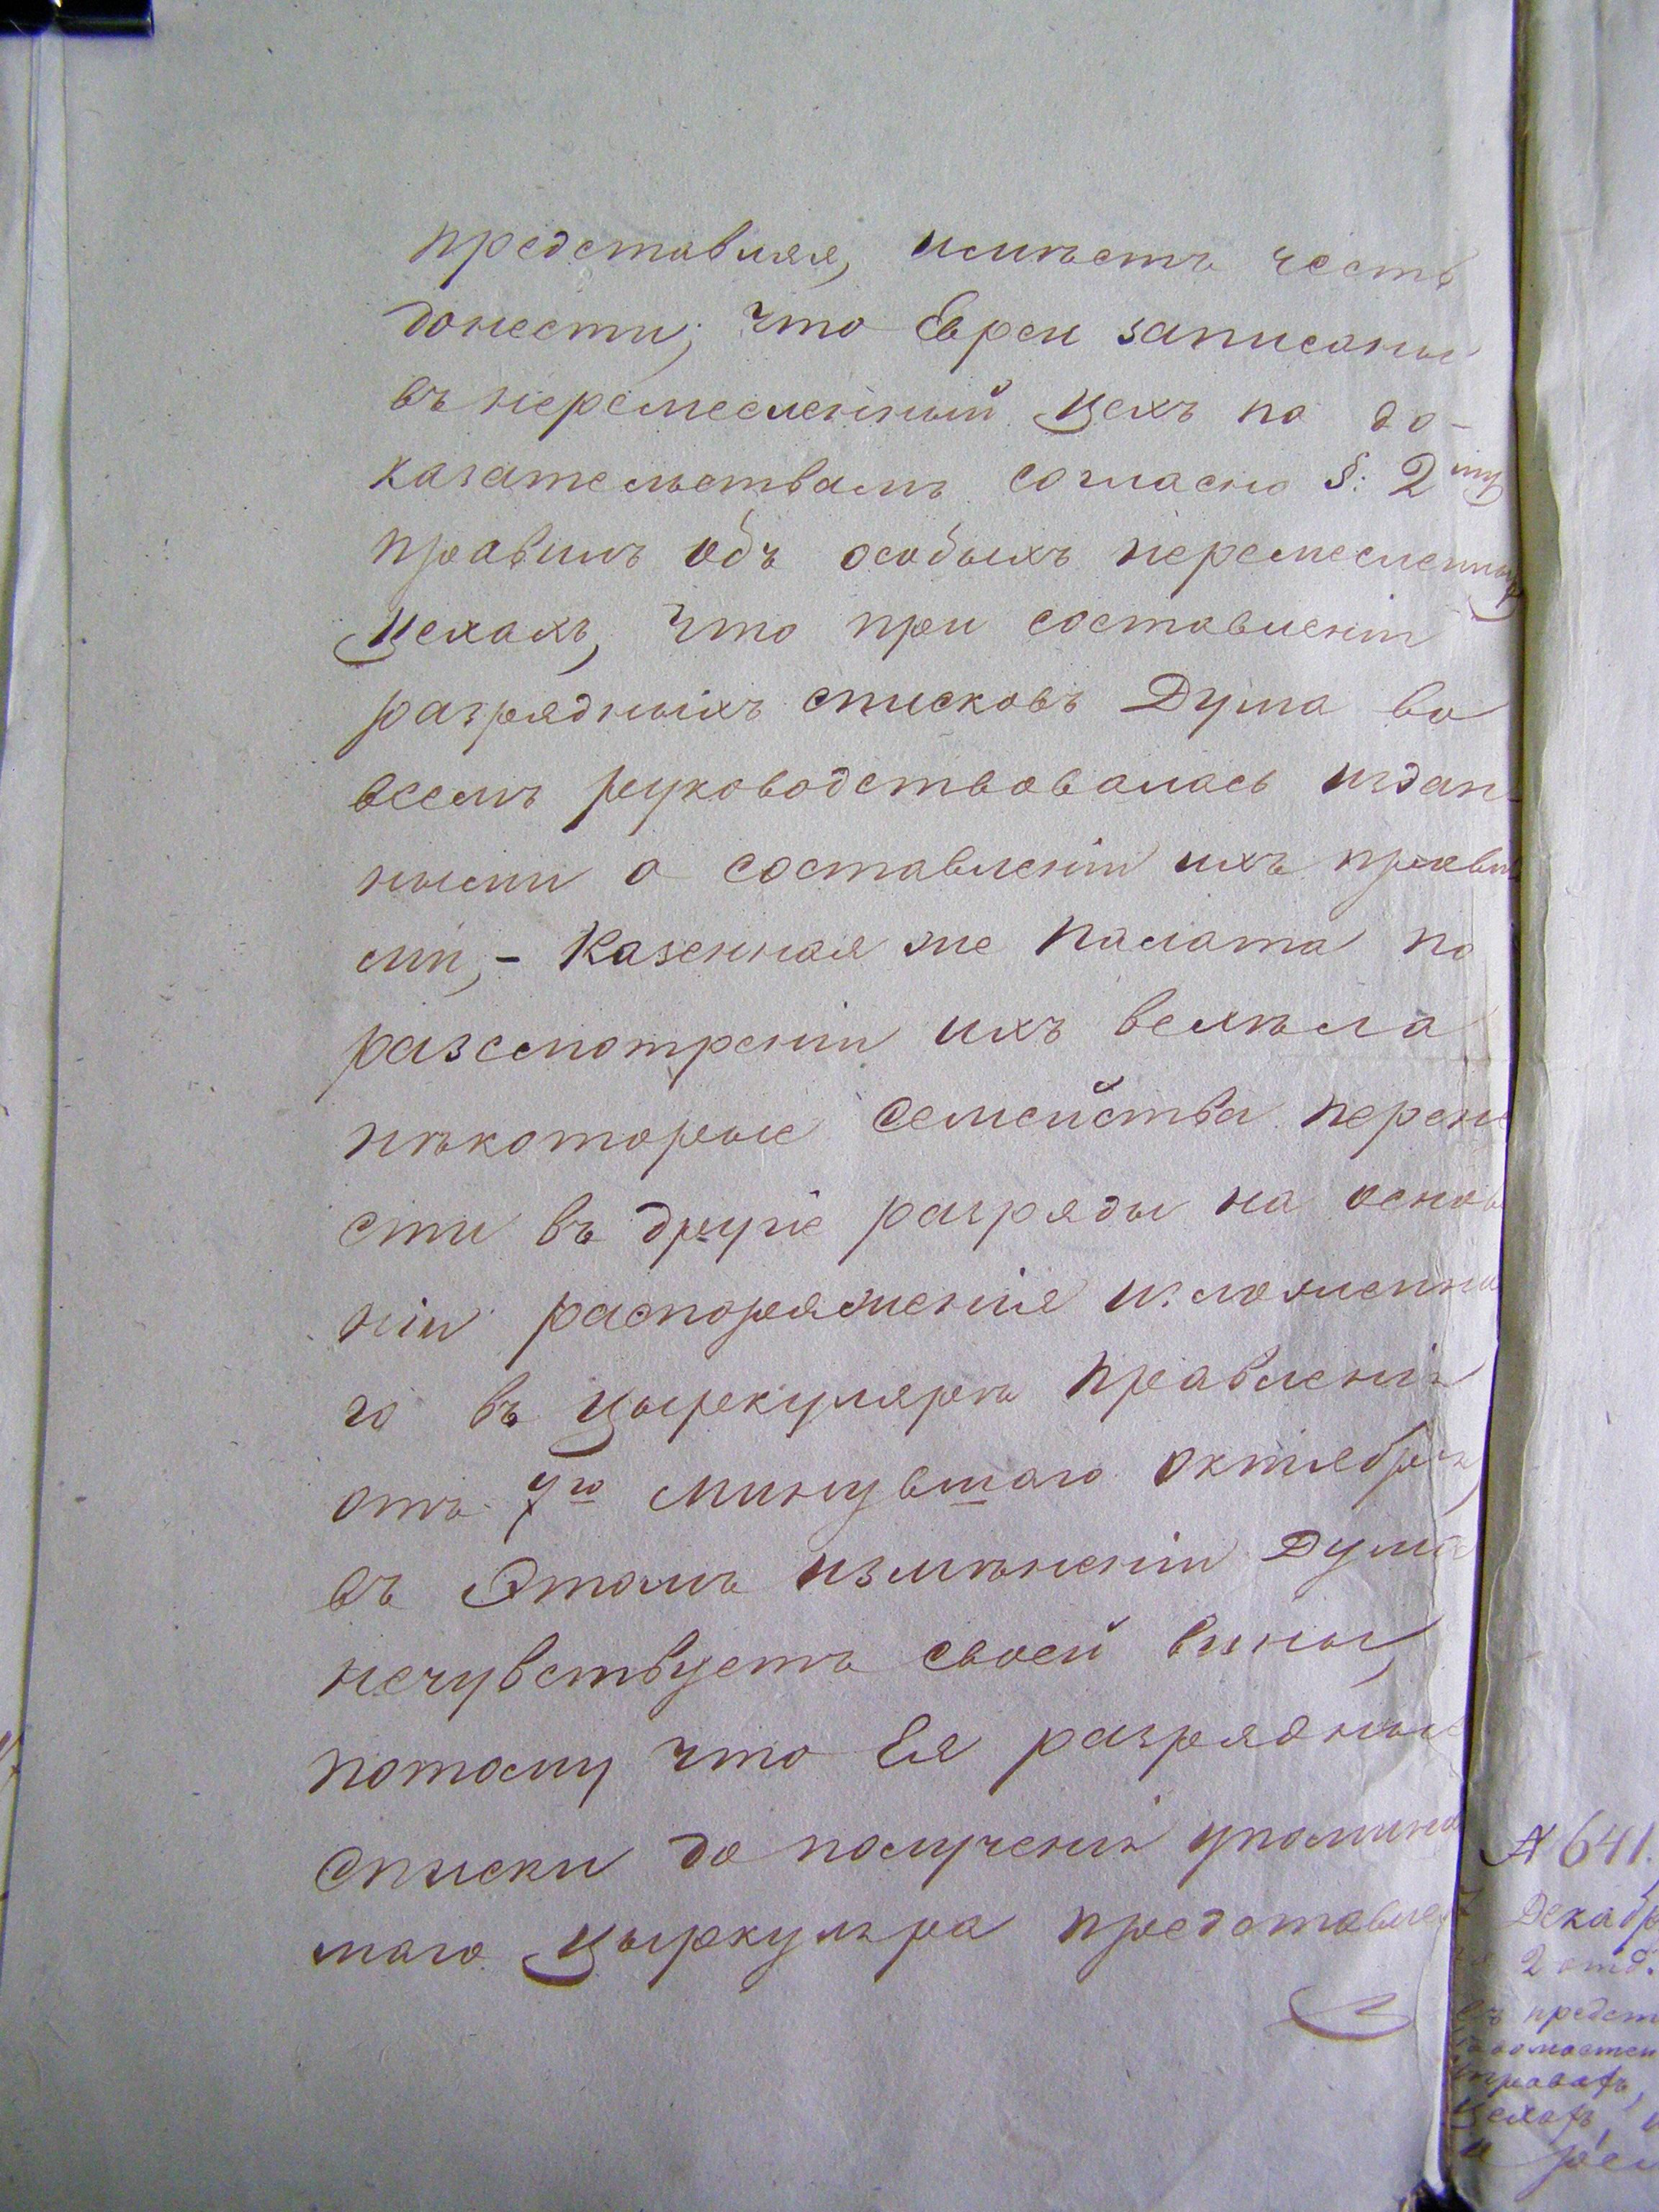 представляя, имѣетъ честь
донести, что Евреи записаны
въ неремесленный цехъ по до-
казательствамъ согласно §: 2му
правилъ объ особыхъ неремесленныхъ
цехахъ, что при составленіи
разрядныхъ списковъ Дума во
всемъ руководствовалась издан-
ными о составленіи ихъ прави
ми, - Казенная же Палата по
разсмотреніи ихъ велѣла
нѣкоторые семейства перене
сти въ другіе разряды на основ
ніи распоряженія изложенна
го въ цыркулярѣ Правленія
отъ 7го минувшаго октября,
въ этомъ измѣненіи Дума
нечувствуетъ своей вины,
потому что Ея разрядные
списки до полученія упомина
маго цыркуляра представле
№ 641.
Декабр
2 отд.
предст
цехахъ,